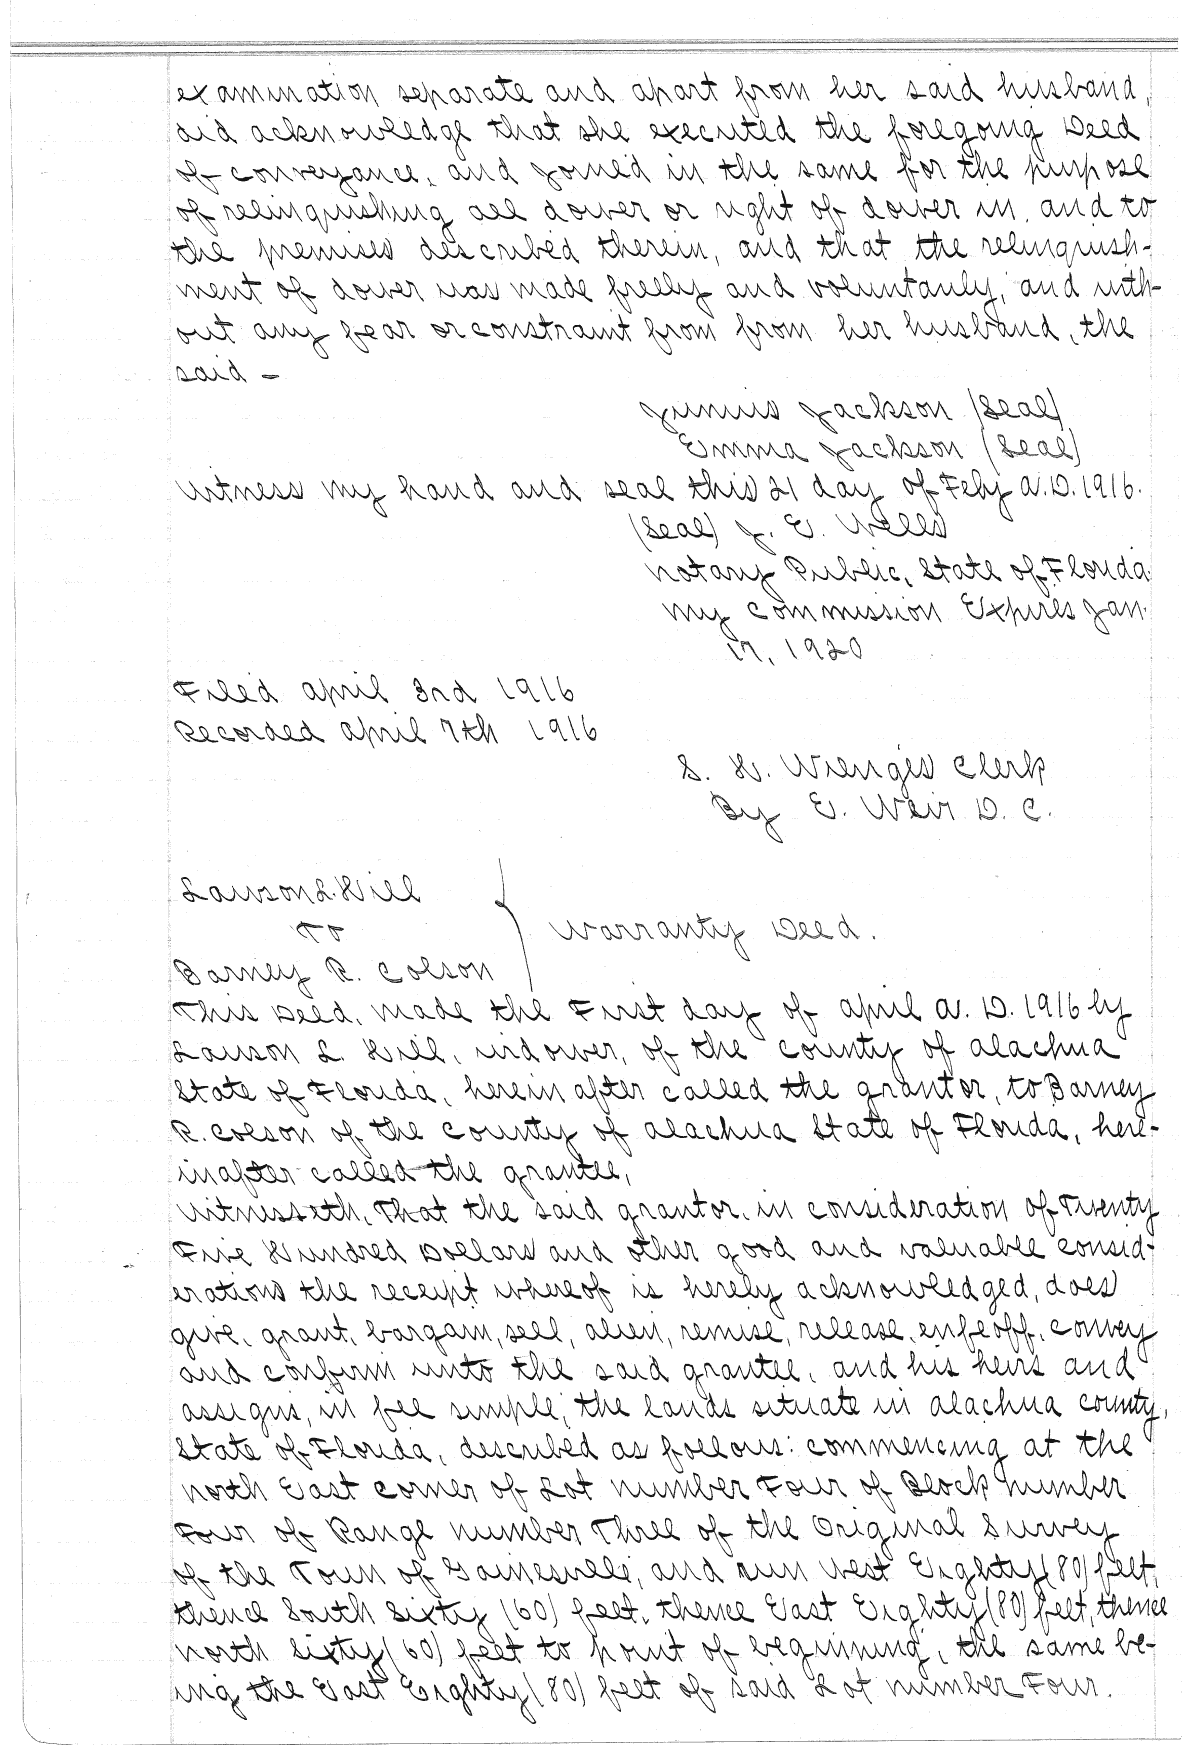 examination separate and apart from her said husband,
did acknowledge that she executed the foregoing Deed
of conveyance, and joined in the same for the purpose
of relinquishing all dower or right of dower in, and to
the premises described therein, and that the relinquish-
ment of dower was made freely and voluntarily, and with-
out any fear or constraint from from her husband, the
said -
Junius Jackson (Seal)
Emma Jackson (Seal)
Witness my hand and seal this 21 day of Feby A.D. 1916.
(Seal) J. E. Wells
Notary Public, State of Florida
My Commission Expires Jan.
17, 1920
Filed April 3rd 1916
Recorded April 7th 1916
S. H. Wienges Clerk
By E. Weir D. C.
Lawson L. Hill
To
Warranty Deed.
Barney R. Colson
This Deed, made the First day of April A. D. 1916 by
Lawson L. Hill, widower, of the County of Alachua
State of Florida, herein after called the grantor, to Barney
R. Colson of the County of Alachua State of Florida, here-
inafter called the grantee,
Witnesseth, That the said grantor, in consideration of Twenty
Five Hundred Dollars and other good and valuable consid-
erations the receipt whereof is hereby acknowledged, does
give, grant, bargain, sell, alien, remise, release, enfeoff, convey
and confirm unto the said grantee, and his heirs and
assigns, in fee simple, the lands situate in Alachua County,
State of Florida, described as follows: Commencing at the
North East corner of Lot number Four of Block Number
Four of Range number Three of the Original Survey
of the Town of Gainesville, and run West Eighty (80) feet,
thence South Sixty (60) feet, thence East Eighty (80) feet, thence
North Sixty (60) feet to point of beginning, the same be-
ing the East Eighty (80) feet of said Lot number Four.